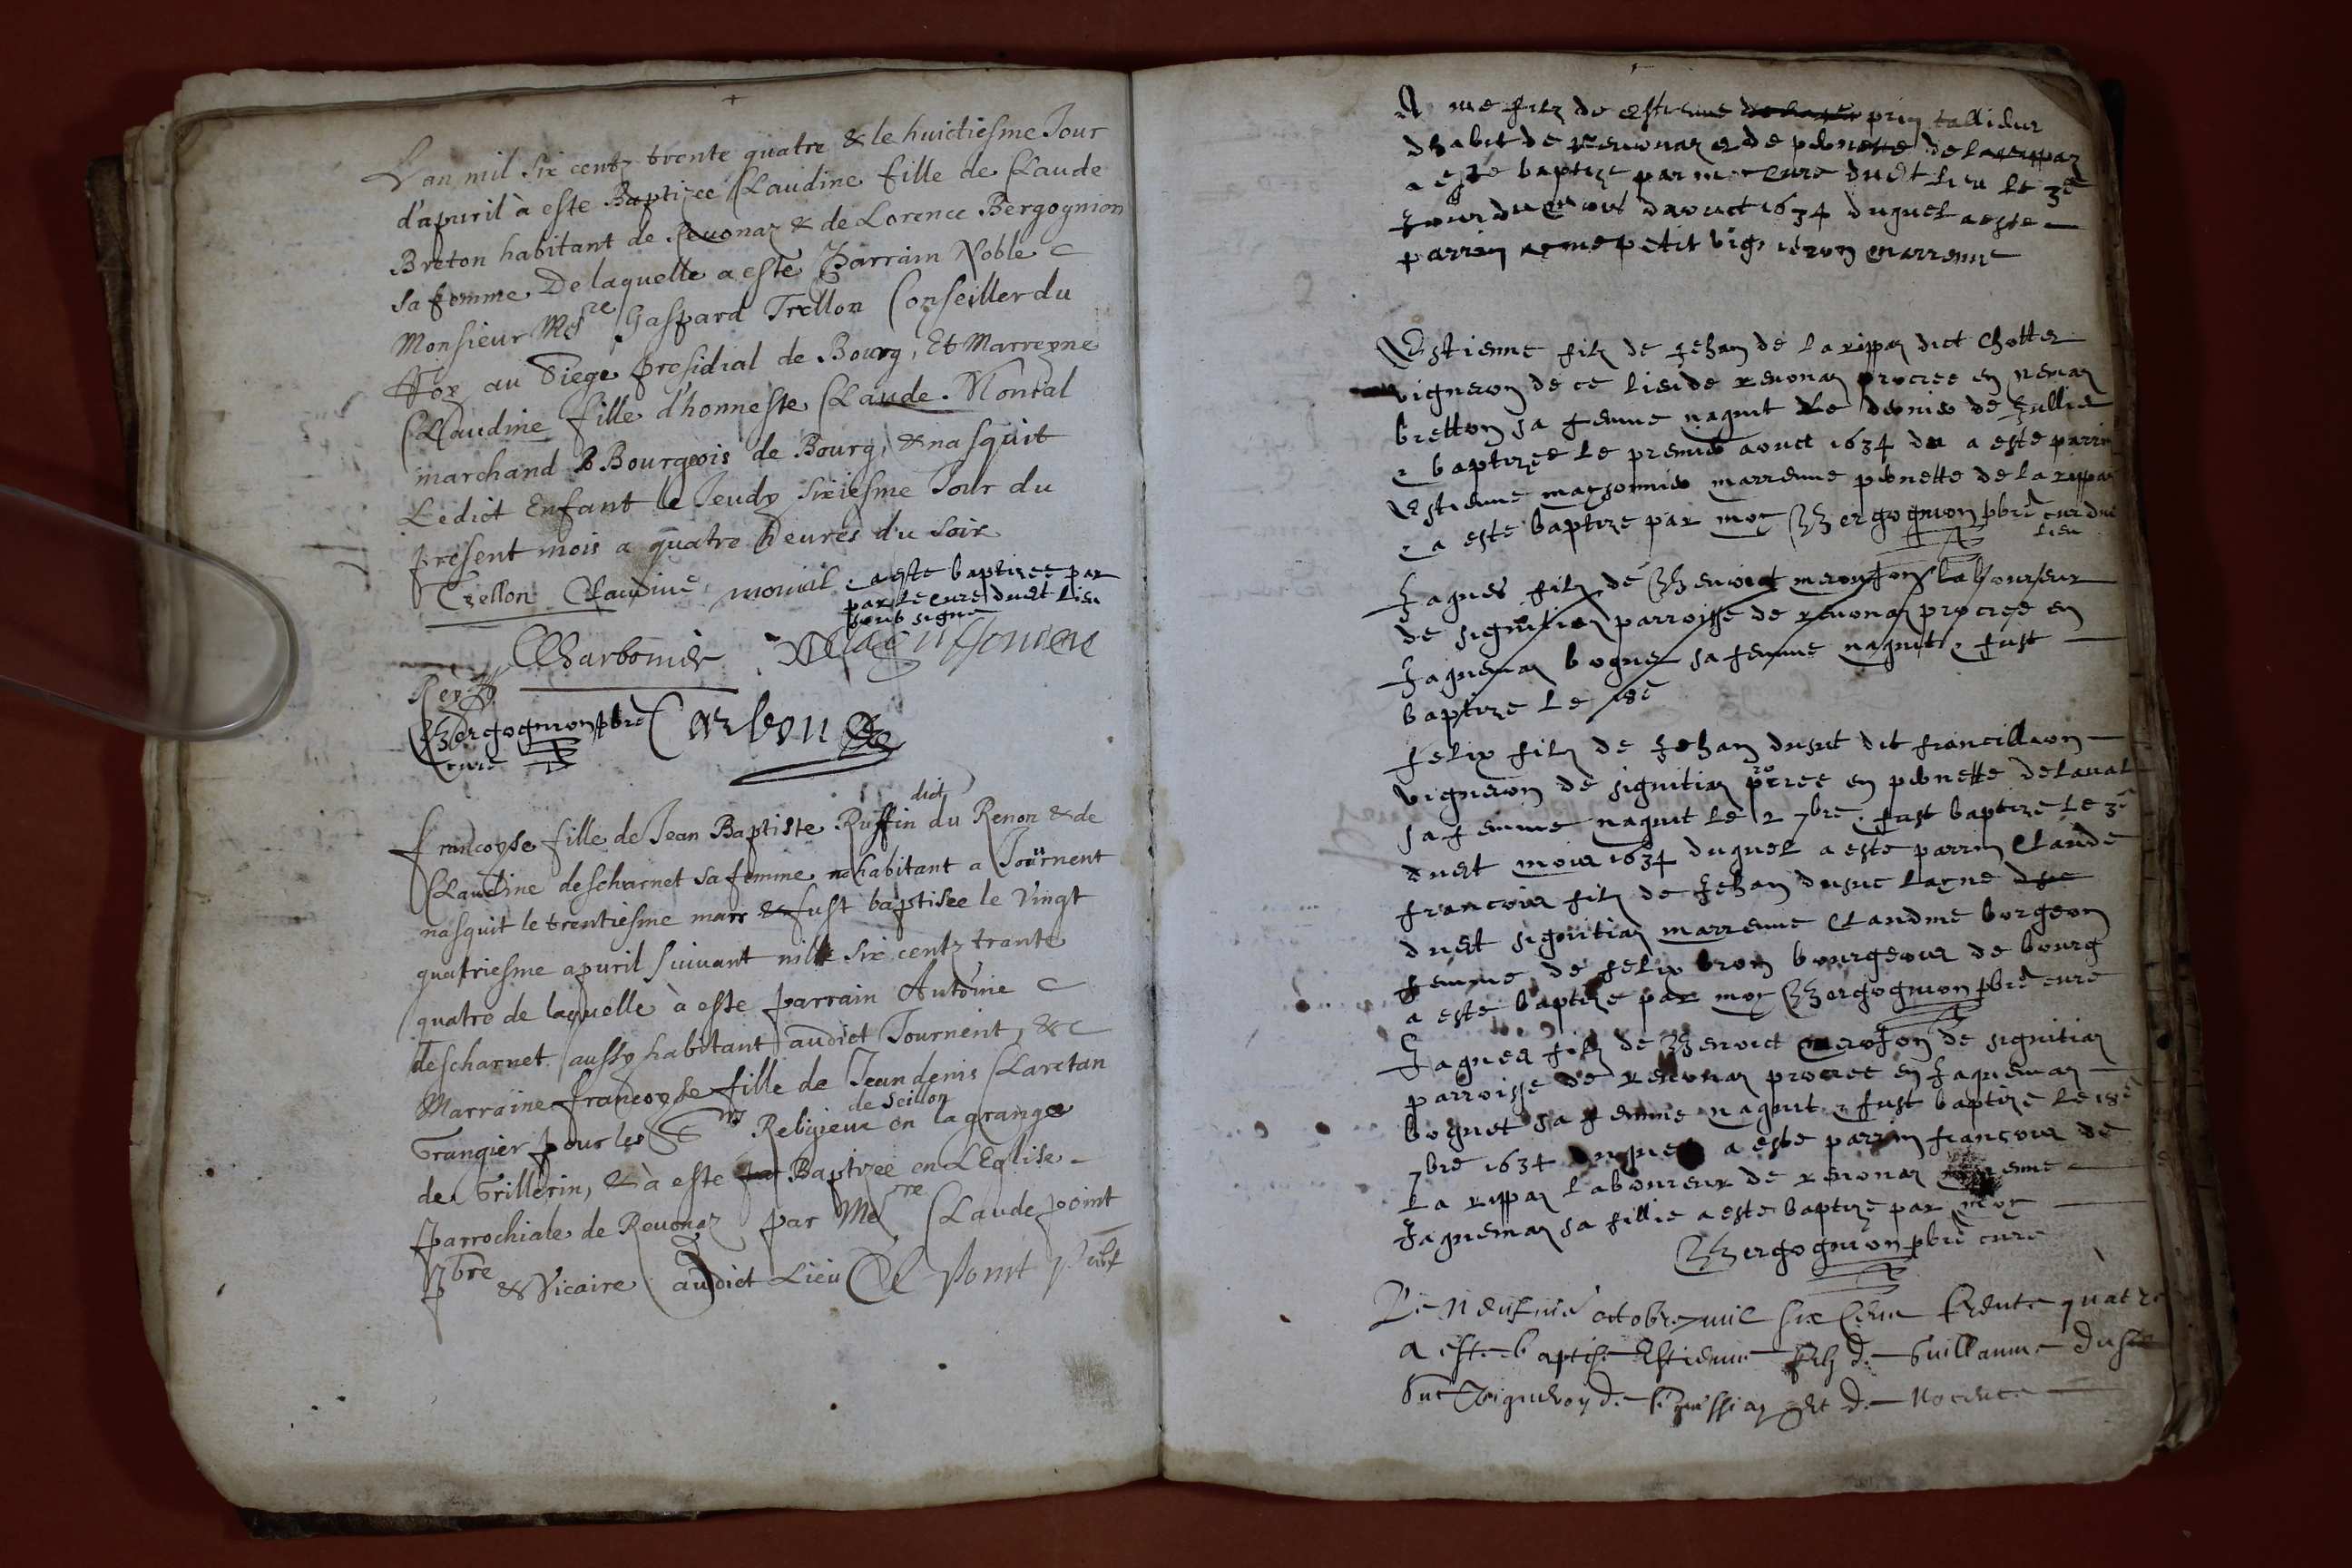 L'an mil six centz trente quatre & le huictiesme Jour
d'apuril à esté Baptizee Claudine fille de Claude
Breton habitant de Reuonaz & de Lorence Bergognion
sa femme De laquelle a esté Parrain Noble
Monsieur Mre Gaspard Trellon Conseiller du
Roy au Siege presidial de Bourg, Et Marreyne
Claudine fille d'honneste Claude Monial
marchand & Bourgeois de Bourg, & nasquit
Ledict Enfant le Jeudy sixiesme Jour du
present mois a quatre heures du soir
Trellon Claudine monial a este baptizee par
par le cure dudt lieu
soub signe
Charbonier
Bergognion pbre
cure
dict
francoyse fille de Jean Baptiste Ruffin du Renon & de
Claudine descharnet sa femme habitant a Tournent
nasquit le trentiesme mars & fust baptisee le Vingt
quatriesme apuril suiuant mille six centz trante
quatre de laquelle à esté parrain Antoine
descharnet aussy habitant audict Tournent, &
Marraine francoyse fille de Jean denis Claretan
de Seillon
Grangier pour les Srs Religieux en la grange
de Grillerin, & à esté par Baptizee en L'Eglise
parrochiale de Reuonaz par Mre Claude point
pbre & Vicaire audict Lieu C point pbre
Ayme filz de estienne prin tallieur
dhabit de reuonaz et de pernette de la rippaz
a este baptize par moy cure dudt lieu le 3e
jour du mois daouct 1634 duquel a este
parrin ayme petit vigneron marrenne
Estienne filz de jehan de la rippaz dict chottez
vigneron de ce lieu de reuonaz procree en
bretton sa femme naquit le dernier de jullie
& baptizee le premier aouct 1634 du a este parrin
Estienne marrenne pernette de la rippaz
& a este baptize par moy Bergognion pbre cure dud
lieu
Jaques filz de Benoict merofon labourieur
de signitiaz parroisse de reuonaz procree en
jaquemaz boguet sa femme naquit & fust
baptize le 18e
felix filz de jehan dusut dit francillion
vigneron de signitiaz procree en pernette delaual
sa femme naquit le 2 7bre fust baptize le 3e
dudt mois 1634 duquel a este parrin claude
francois filz de jehan dusuc layne
dudt signitiaz marrenne claudine borgeon
femme de felix bron bourgeois de bourg
a este baptize par moy Bergognion pbre cure
Jaques filz de Benoict merofon de signitiaz
parroisse de reuonaz procree en jaquemaz
boguet sa femme naquit & fust baptize le 18e
7bre 1634 duquel a este parrin francois de
la rippaz laboureur de reuonaz marrenne
jaquemaz sa fillie a este baptize par moy
Bergognion pbre cure
Le neufuie octobre mil six cens trente quatre
a este baptise Estienne filz de Guillaume
vigneron de et de